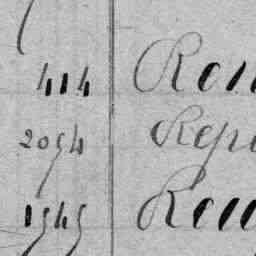 414 Ren
2054 Repu
1545 Reu